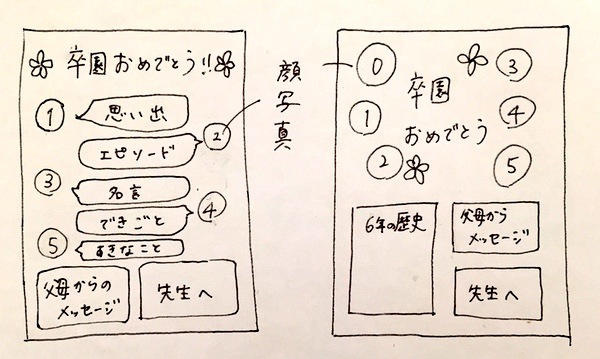 卒園おめでとう!!
1
思い出
エピソード
2
3
名言
できごと
4
5
すきなこと
父母からの
メッセージ
先生へ
顔写真
0
3
卒園
1
4
おめでとう
2
5
6年の歴史
父母から
メッセージ
先生へ